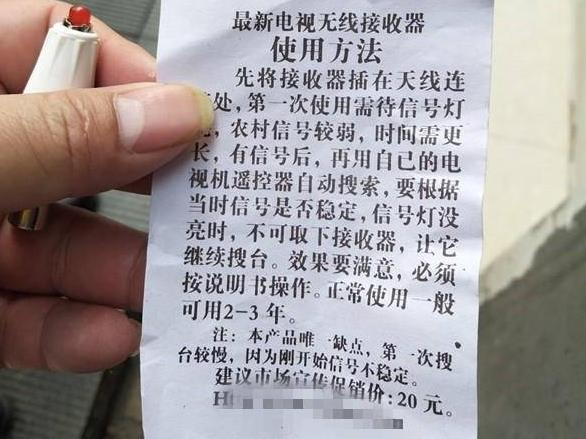 最新电视无线接收器
使用方法
先将接收器插在天线连
处，第一次使用需待信号灯
，农村信号较弱，时间需更
长，有信号后，再用自己的电
视机遥控器自动搜索，要根据
当时信号是否稳定，信号灯没
亮时，不可取下接收器，让它
继续搜台。效果要满意，必须
按说明书操作。正常使用一般
可用2-3年。
注：本产品唯一缺点，第一次搜
台较慢，因为刚开始信号不稳定。
建议市场宣传促销价：20元。